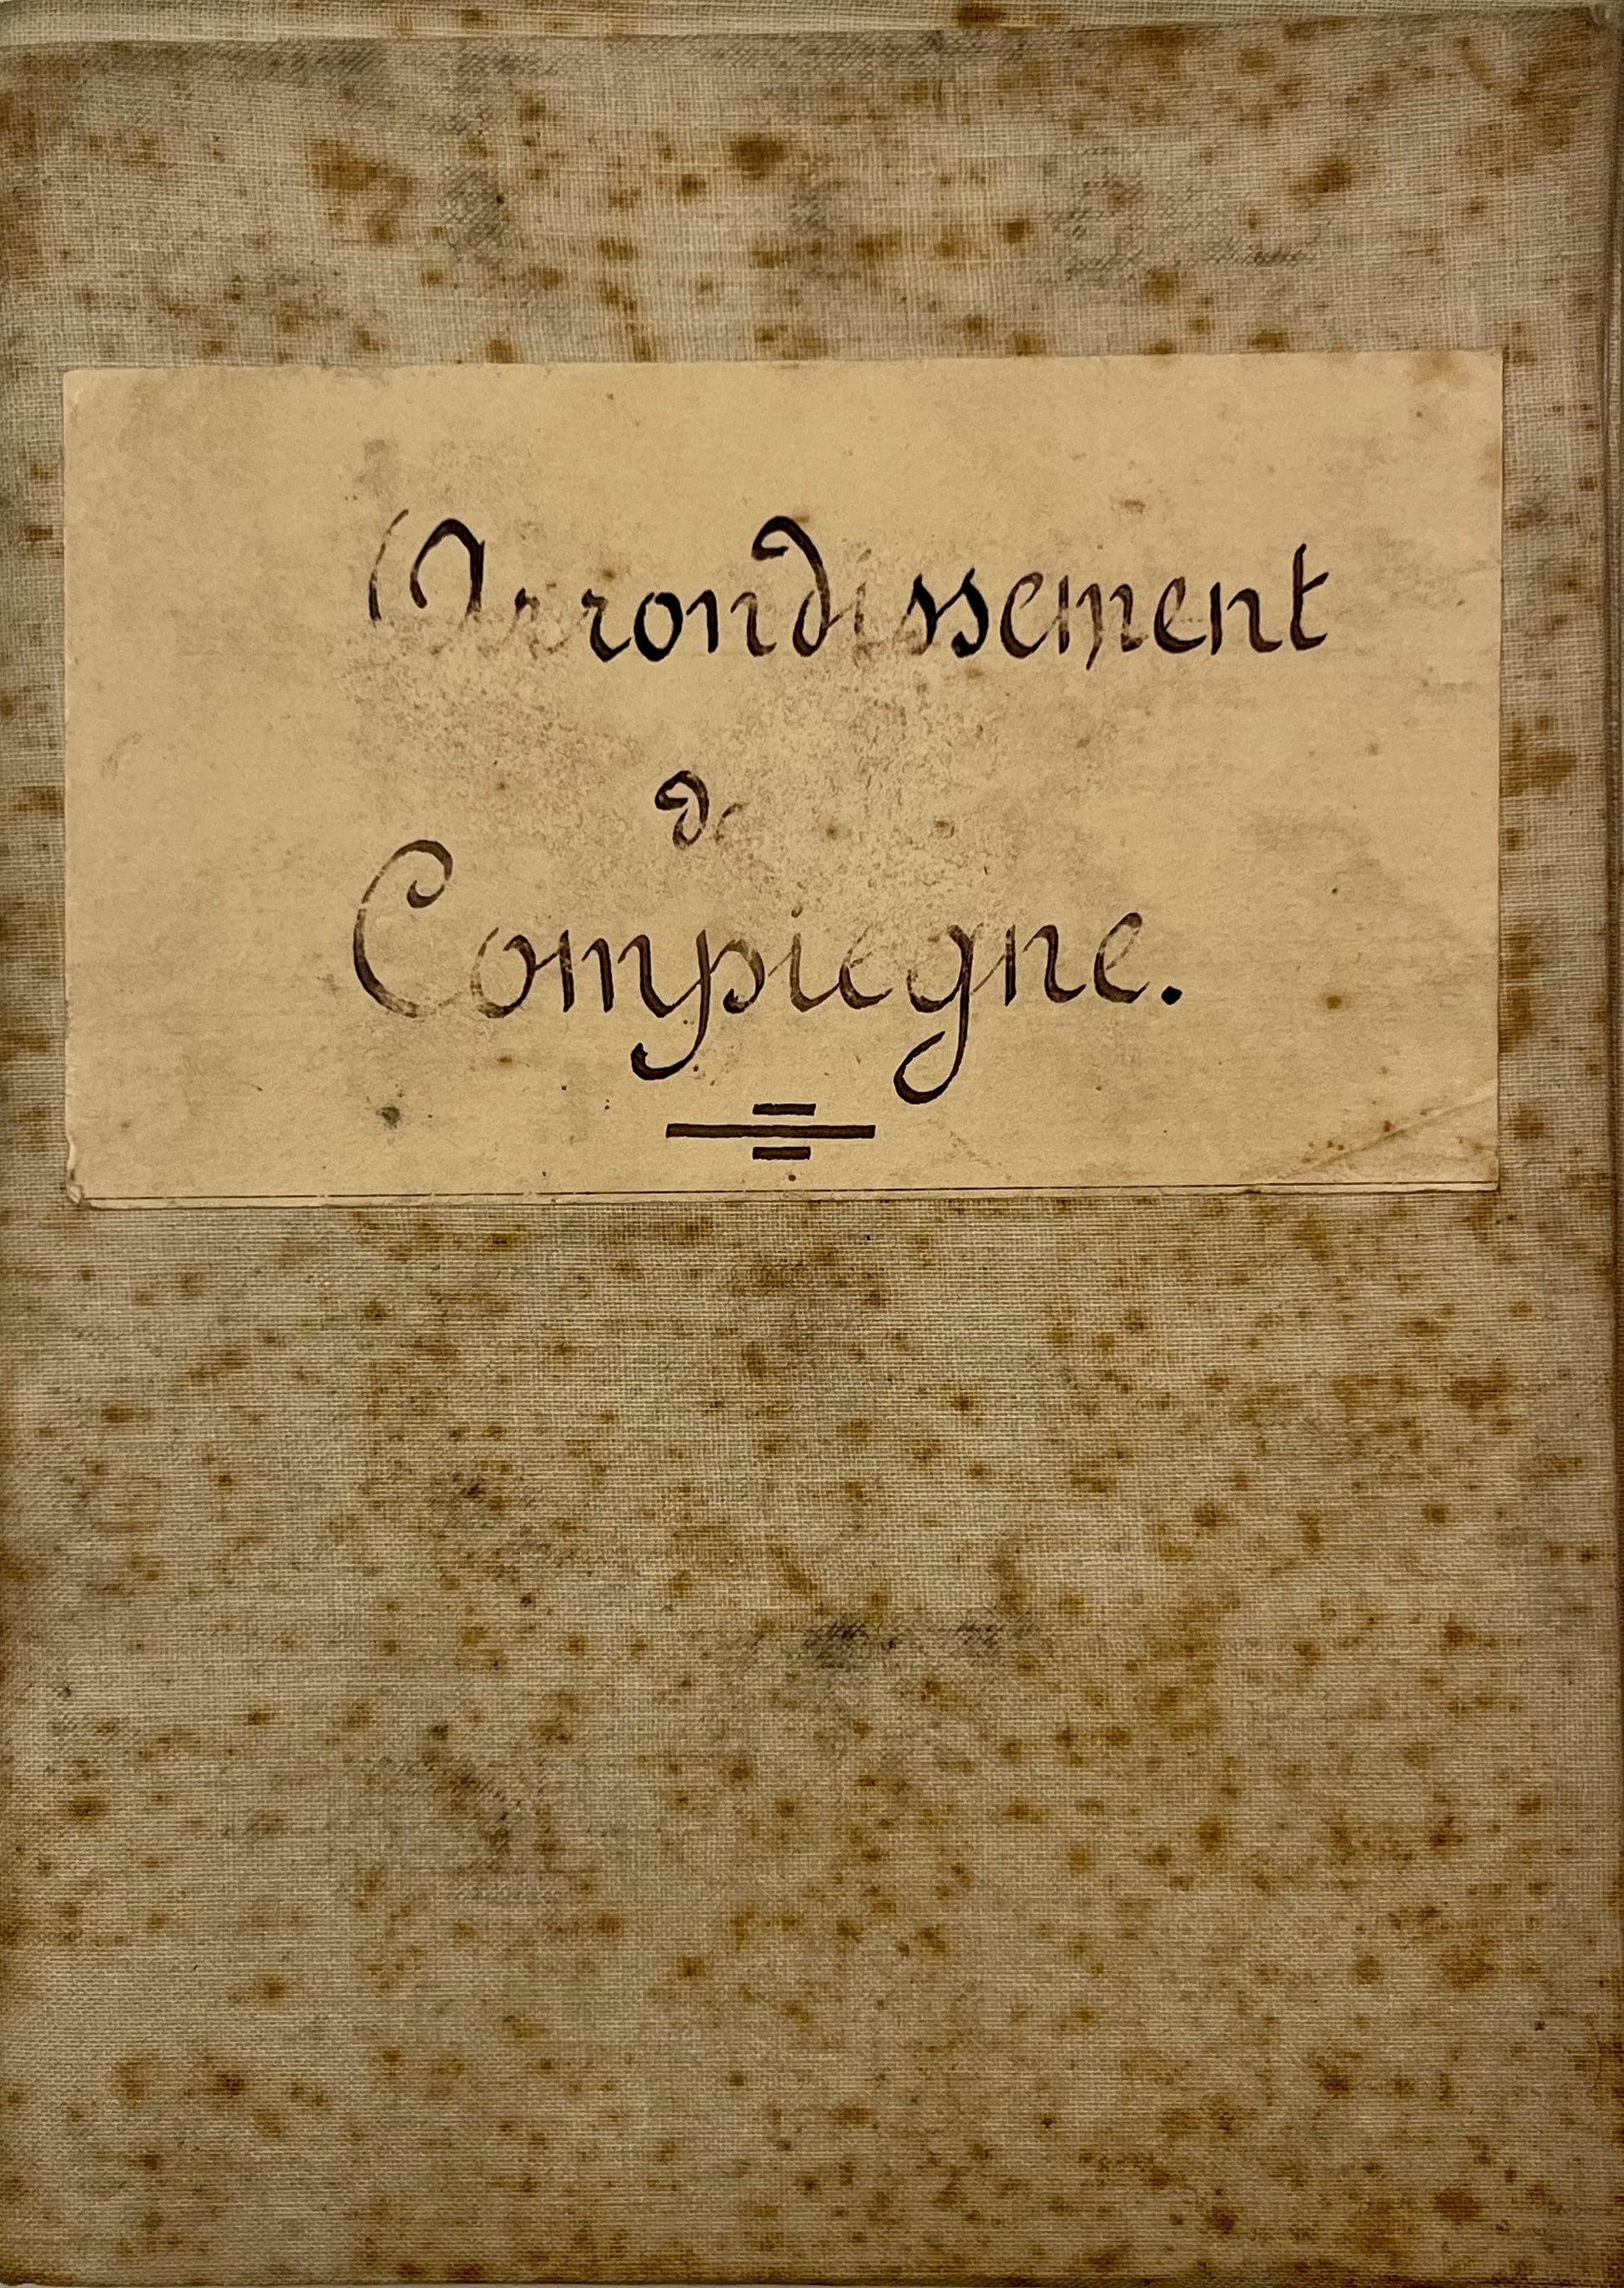 Arrondissement
de
Compiegne.